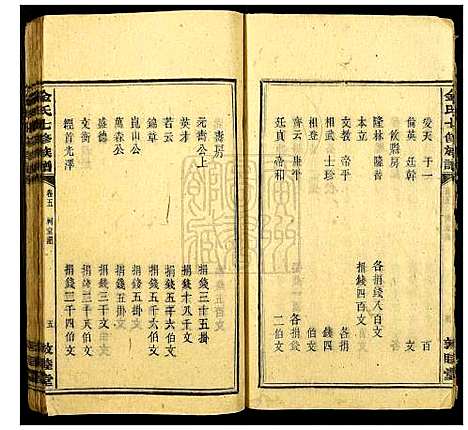 金氏七修族譜
愛天 于一 百
英廷 廷幹 文
攸縣房
隆林 隆普 各捐錢八百文
本立 捐錢四百文
文教 帝平 各捐
相武 士珍 錢四
相登 伯文
齊云 康平 各捐
廷貞 廷和 二伯文
敦睦堂
壽房
元壽公上 捐錢三十五掛
英才 捐錢十八千文
若云 捐錢五千六伯文
錦章 捐錢五千文
崑山公 捐錢五掛文
萬春公 捐錢五掛
盛德 捐錢三千文
文衡 捐錢三千八伯文
經首光澤 捐錢二千四伯文
金氏七修族譜
卷五
五
敦睦堂